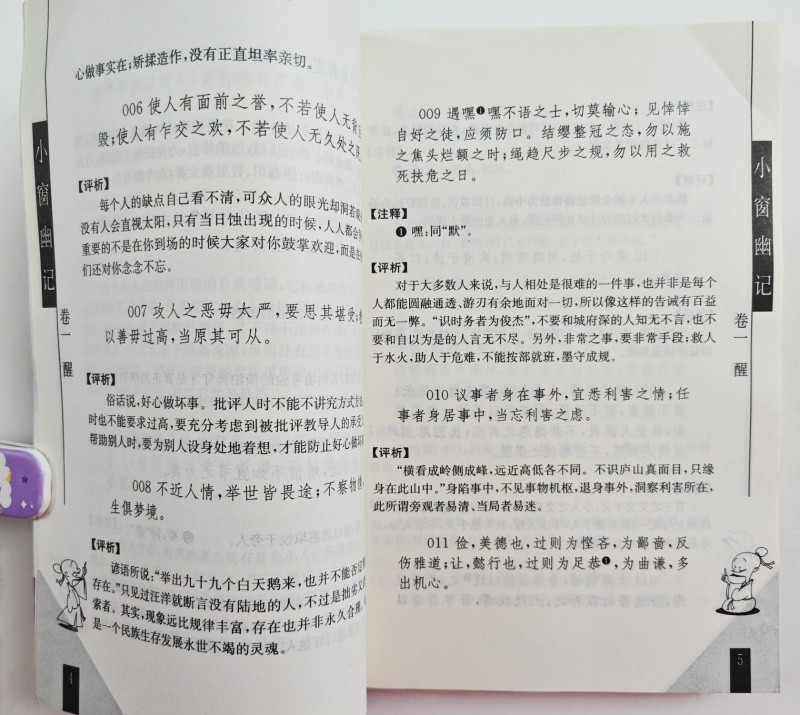 心做事实在；矫揉造作，没有正直坦率亲切。
006 使人有面前之誉，不若使人无背
毁；使人有乍交之欢，不若使人无久处之
【评析】
每个人的缺点自己看不清，可众人的眼光却洞若
没有人会直视太阳，只有当日蚀出现的时候，人人都会
重要的不是在你到场的时候大家对你鼓掌欢迎，而是在
们还对你念念不忘。
007 攻人之恶毋太严，要思其堪受；
以善毋过高，当原其可从。
【评析】
俗话说，好心做坏事。批评人时不能不讲究方式方
时也不能要求过高，要充分考虑到被批评教导人的承受
帮助别人时，要为别人设身处地着想，才能防止好心做坏
008 不近人情，举世皆畏途；不察物情
生俱梦境。
【评析】
谚语所说：“举出九十九个白天鹅来，也并不能否定
存在。”只见过汪洋就断言没有陆地的人，不过是拙劣
索者。其实，现象远比规律丰富，存在也并非永久合理，
是一个民族生存发展永世不竭的灵魂。
小窗幽记
卷一 醒
4
009 遇嘿❶嘿不语之士，切莫输心；见悻悻
自好之徒，应须防口。结缨整冠之态，勿以施
之焦头烂额之时；绳趋尺步之规，勿以用之救
死扶危之日。
【注释】
❶ 嘿：同“默”。
【评析】
对于大多数人来说，与人相处是很难的一件事，也并非是每个
人都能圆融通透、游刃有余地面对一切，所以像这样的告诫有百益
而无一弊。“识时务者为俊杰”，不要和城府深的人知无不言，也不
要和自以为是的人言无不尽。另外，非常之事，要非常手段；救人
于水火，助人于危难，不能按部就班，墨守成规。
010 议事者身在事外，宜悉利害之情；任
事者身居事中，当忘利害之虑。
【评析】
“横看成岭侧成峰，远近高低各不同。不识庐山真面目，只缘
身在此山中。”身陷事中，不见事物机枢，退身事外，洞察利害所在，
此所谓旁观者易清、当局者易迷。
011 俭，美德也，过则为悭吝，为鄙啬，反
伤雅道；让，懿行也，过则为足恭❶，为曲谦，多
出机心。
小窗幽记
卷一 醒
5